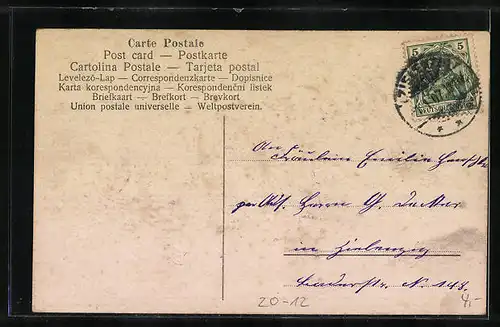 Carte Postale
Post card — Postkarte
Cartolina Postale — Tarjeta postal
Levelező-Lap — Correspondenzkarte — Dopisnice
Karta korespondencyjna — Korespondenční lístek
Briefkaart — Brefkort — Brevkort
Union postale universelle — Weltpostverein.
5 5
An
Fräulein Emilie
per Adr. Herrn G.
in Zielenzig
N. 148.
20-12
4,-